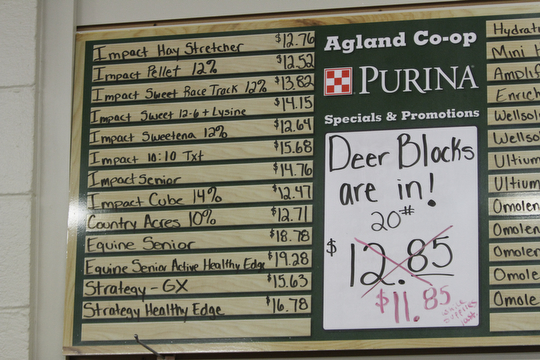 Impact Hay Stretcher $12.76
Impact Pellet 12% $12.52
Impact Sweet Race Track 12% $13.82
Impact Sweet 12-6 + Lysine $14.15
Impact Sweetena 12% $12.64
Impact 10:10 Txt $15.68
Impact Senior $14.76
Impact Cube 14% $12.47
Country Acres 10% $12.71
Equine Senior $18.78
Equine Senior Active Healthy Edge $19.28
Strategy - GX $15.63
Strategy Healthy Edge $16.78
Agland Co-op
PURINA
Specials & Promotions
Deer Blocks
are in!
20#
$12.85
$11.85
Hydrat
Mini H
Amplif
Enrich
Wellsol
Wellso
Ultium
Ultium
Omolen
Omolen
Omolen
Omole
Omole